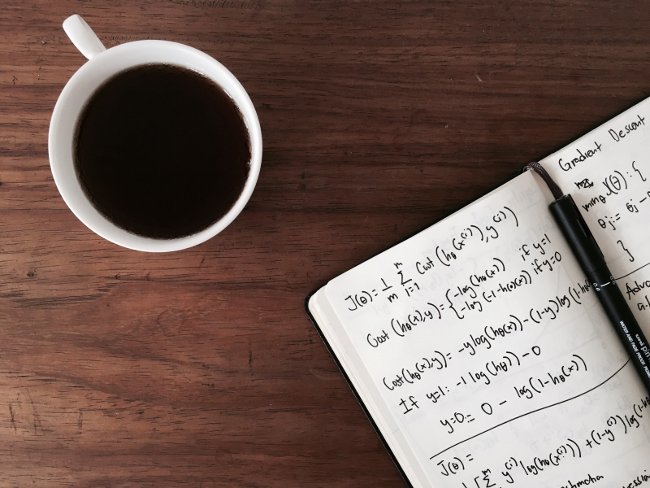 J(θ) = 1/m Σ i=1 m Cost (hθ(x^(i)), y^(i))
Cost (hθ(x), y) = { -log(hθ(x)) if y=1
-log (1-hθ(x)) if y=0
Cost(hθ(x),y) = -y log(hθ(x)) - (1-y) log (1-hθ
If y=1: -1 log(hθ)) - 0
y=0 = 0 - log(1-hθ(x))
J(θ) =
Σ m y^(i) log(hθ(x^(i))) + (1-y^(i)) log(1-h
Gradient Descent
minθ J(θ): {
θj := θj -
}